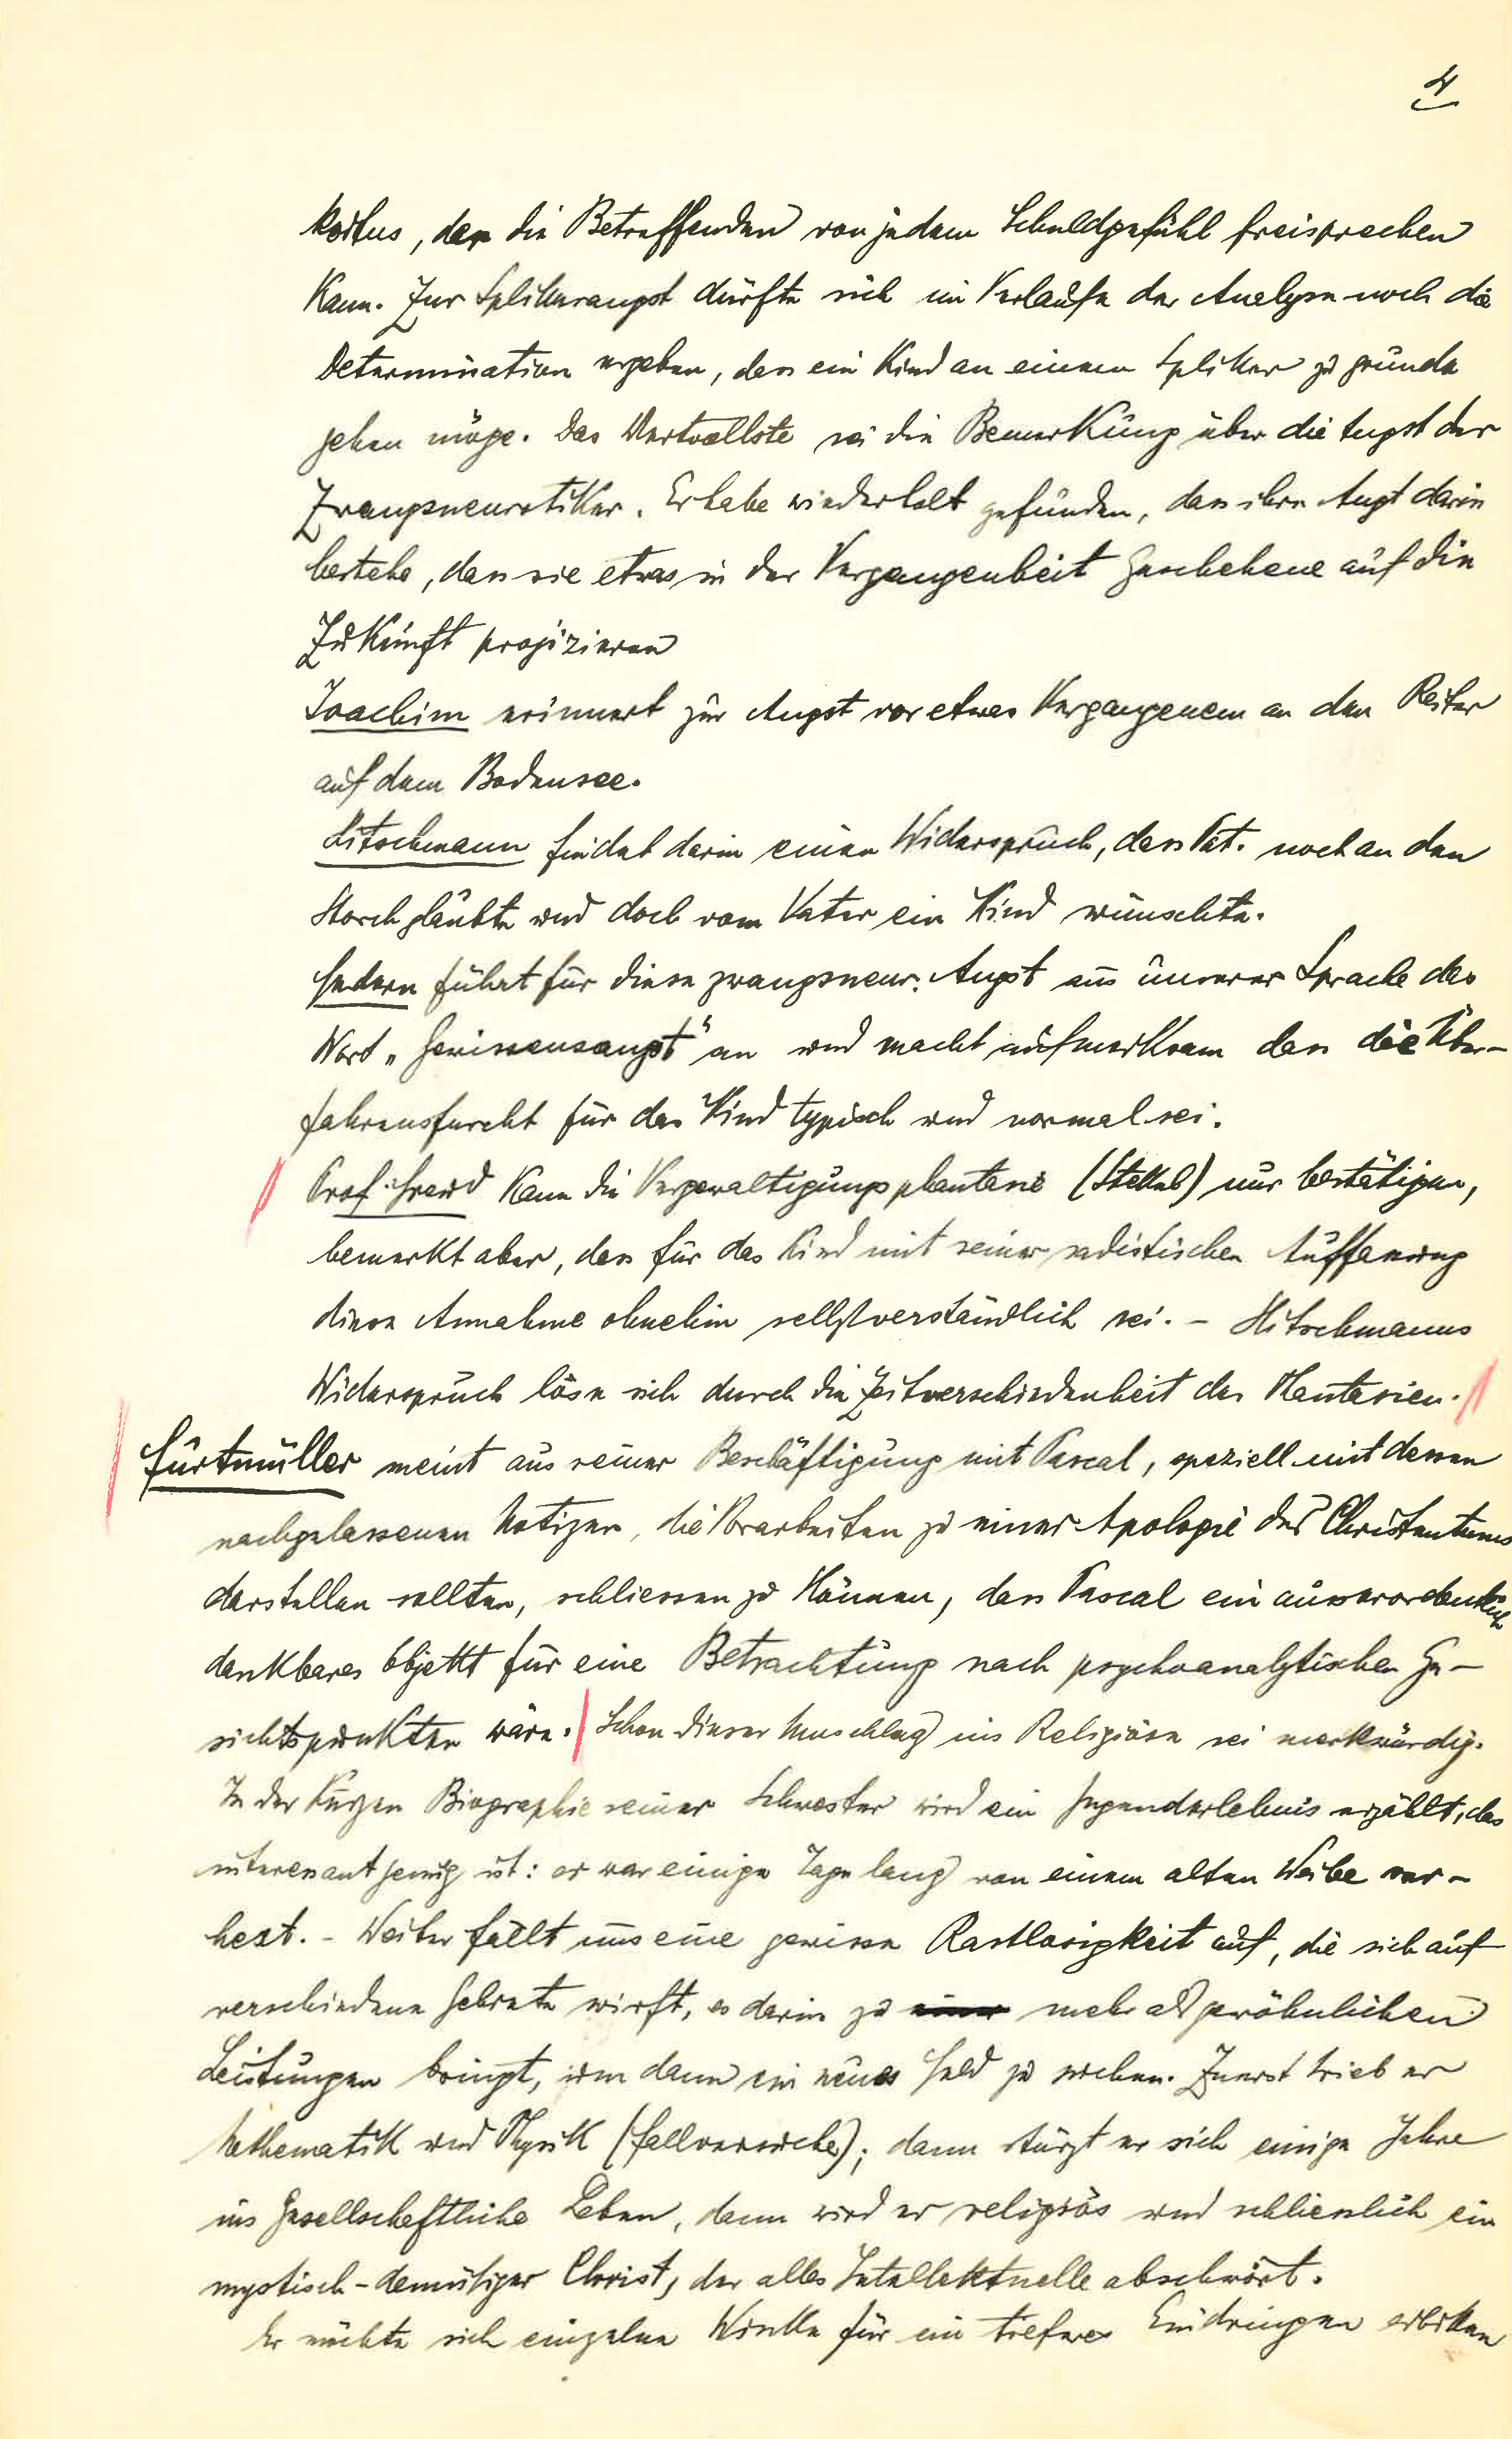 4
koitus, der die Betreffenden von jedem Schuldgefühl freisprechen
kann. Zur Splitterangst dürfte sich im Verlaufe der Analyse noch die
Determination ergeben, dass ein Kind an einem Splitter zu grunde
gehen möge. Das Wertvollste sei die Bemerkung über die Angst der
Zwangsneurotiker. Er habe wiederholt gefunden, dass ihre Angst darin
bestehe, dass sie etwas in der Vergangenheit Geschehene auf die
Zukunft projizieren
Joachim erinnert zur Angst vor etwas Vergangenem an den Reiter
auf dem Bodensee.
Hitschmann findet darin einen Widerspruch, dass Pat. noch an den
Storch glaubte und doch vom Vater ein Kind wünschte.
Federn führt für diese zwangsneur. Angst aus unserer Sprache das
Wort „Gewissensangst" an und macht aufmerksam dass die Über-
fahrensfurcht für das Kind typisch und normal sei.
Prof. Freud kann die Vergewaltigungsphantasie (Stekel) nur bestätigen,
bemerkt aber, dass für das Kind mit seiner sadistischen Auffassung
diese Annahme ohnehin selbstverständlich sei. – Hitschmanns
Widerspruch löse sich durch die Zeitverschiedenheit der Phantasien.
Furtmüller meint aus seiner Beschäftigung mit Pascal, speziell mit dessen
nachgelassenen Notizen, die Vorarbeiten zu einer Apologie des Christentums
darstellen sollten, schliessen zu können, dass Pascal ein ausserordentlich
dankbares Objekt für eine Betrachtung nach psychoanalytischen Ge-
sichtspunkten wäre. Schon dieser Umschlag ins Religiöse sei merkwürdig.
In der kurzen Biographie seiner Schwester wird ein Jugenderlebnis erzählt, das
interessant genug ist: er war einige Tage lang von einem alten Weibe ver-
hext. – Weiter fällt uns eine gewisse Rastlosigkeit auf, die sich auf
verschiedene Gebiete wirft, es darin zu mehr als gewöhnlichen
Leistungen bringt, um dann ein neues Feld zu suchen. Zuerst trieb er
Mathematik und Physik (Fallversuche); dann stürzt er sich einige Jahre
ins gesellschaftliche Leben, dann wird er religiös und schliesslich ein
mystisch-demütiger Christ, der alles Intellektuelle abschwört.
Er möchte sich einzelne Winke für ein tieferes Eindringen erbitten